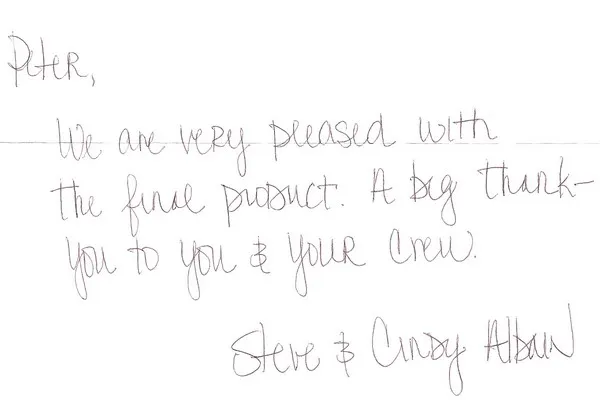 Peter,
We are very pleased with
the final product. A big thank-
you to you & your crew.
Steve & Cindy